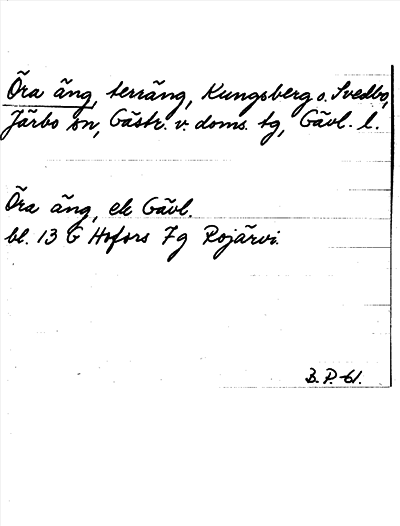 Öra äng, terräng, Kungsberg o. Svedbo,
Järbo sn, Gästr. v. doms. tg, Gävl. l.
Öra äng, ek Gävl.
bl. 13 G Hofors 7g Rojärvi.
B. P. -61.